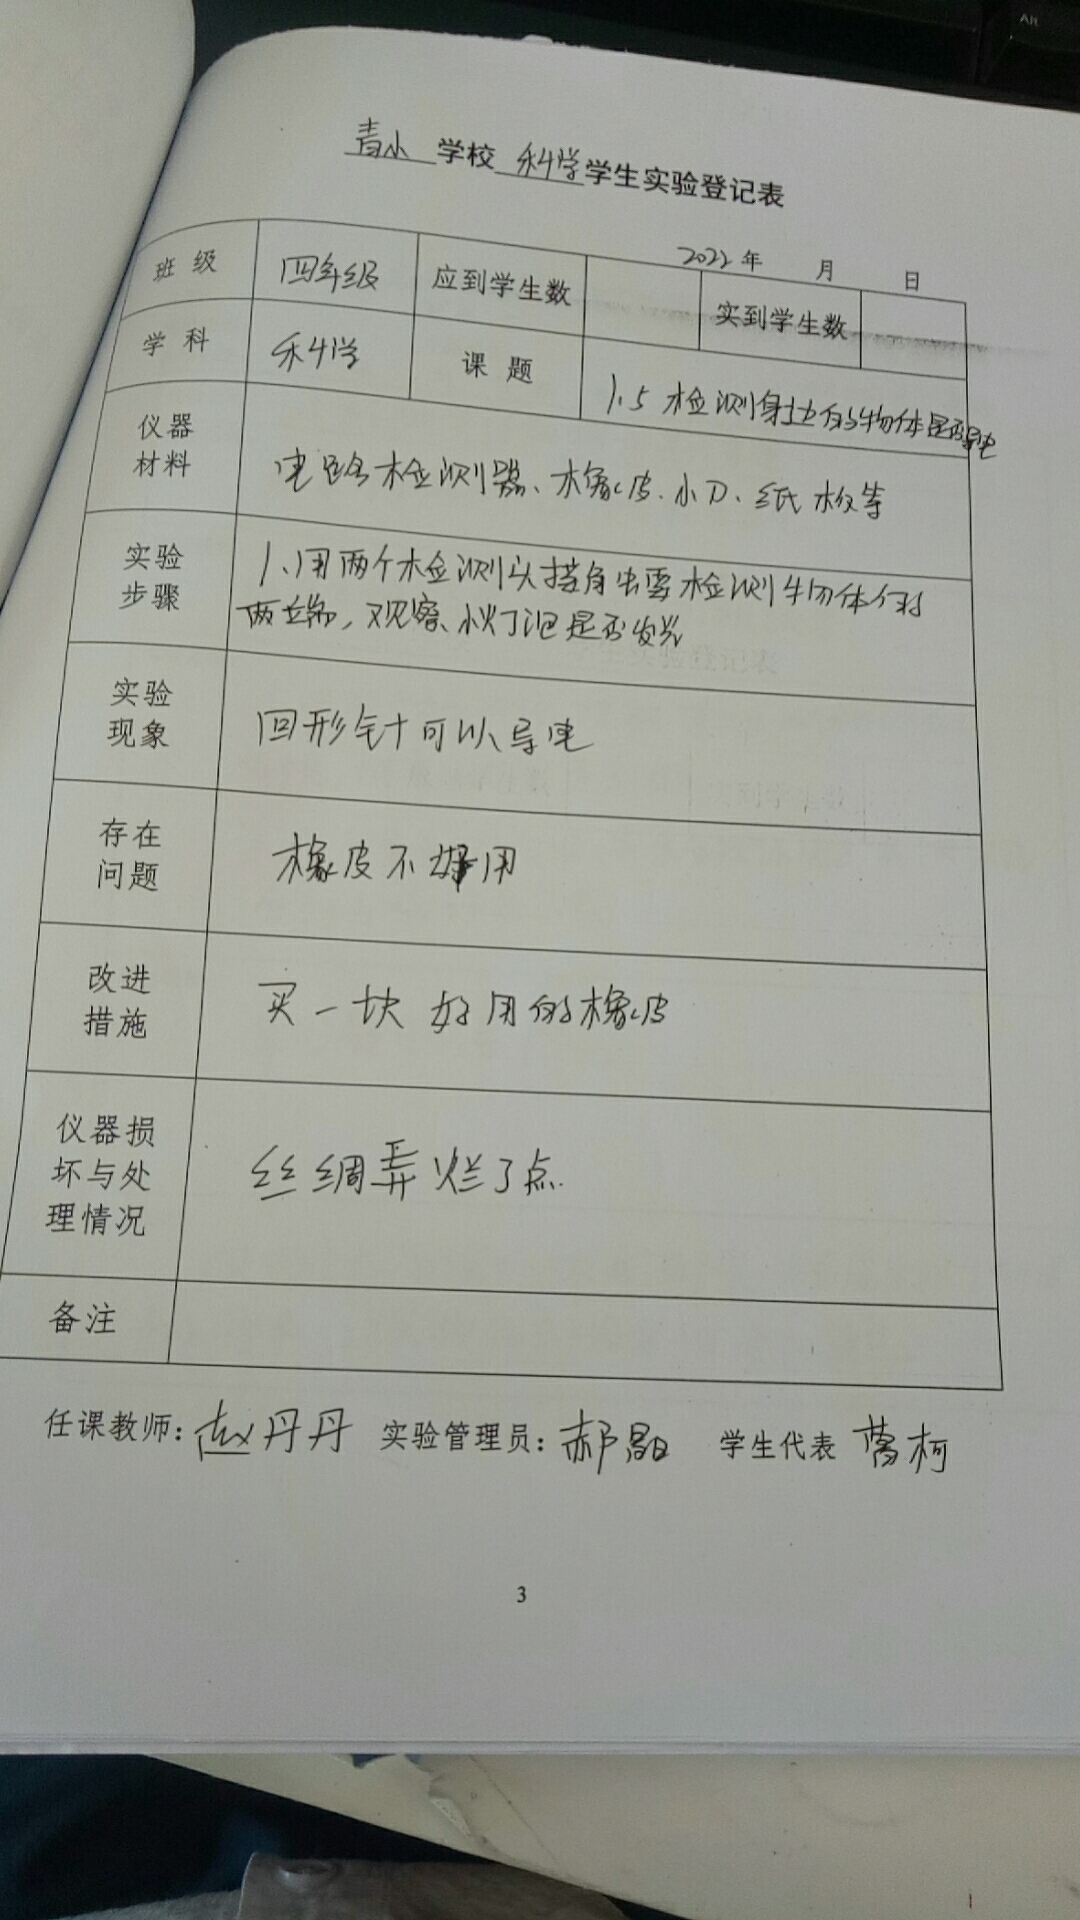 青小 学校 科学 学生实验登记表
2022 年 月 日
班 级 四年级 应到学生数 实到学生数
学 科 科学 课 题 1.5 检测身边的物体是否导电
仪器
材料
电路检测器、橡皮、小刀、纸板等
实验
步骤
1、用两个检测头接触需检测物体的
两端,观察小灯泡是否发光
实验
现象
回形针可以导电
存在
问题
橡皮不好用
改进
措施
买一块好用的橡皮
仪器损
坏与处
理情况
丝绸弄烂了点.
备注
任课教师: 赵丹丹 实验管理员: 郝 学生代表 柯
3
Alt